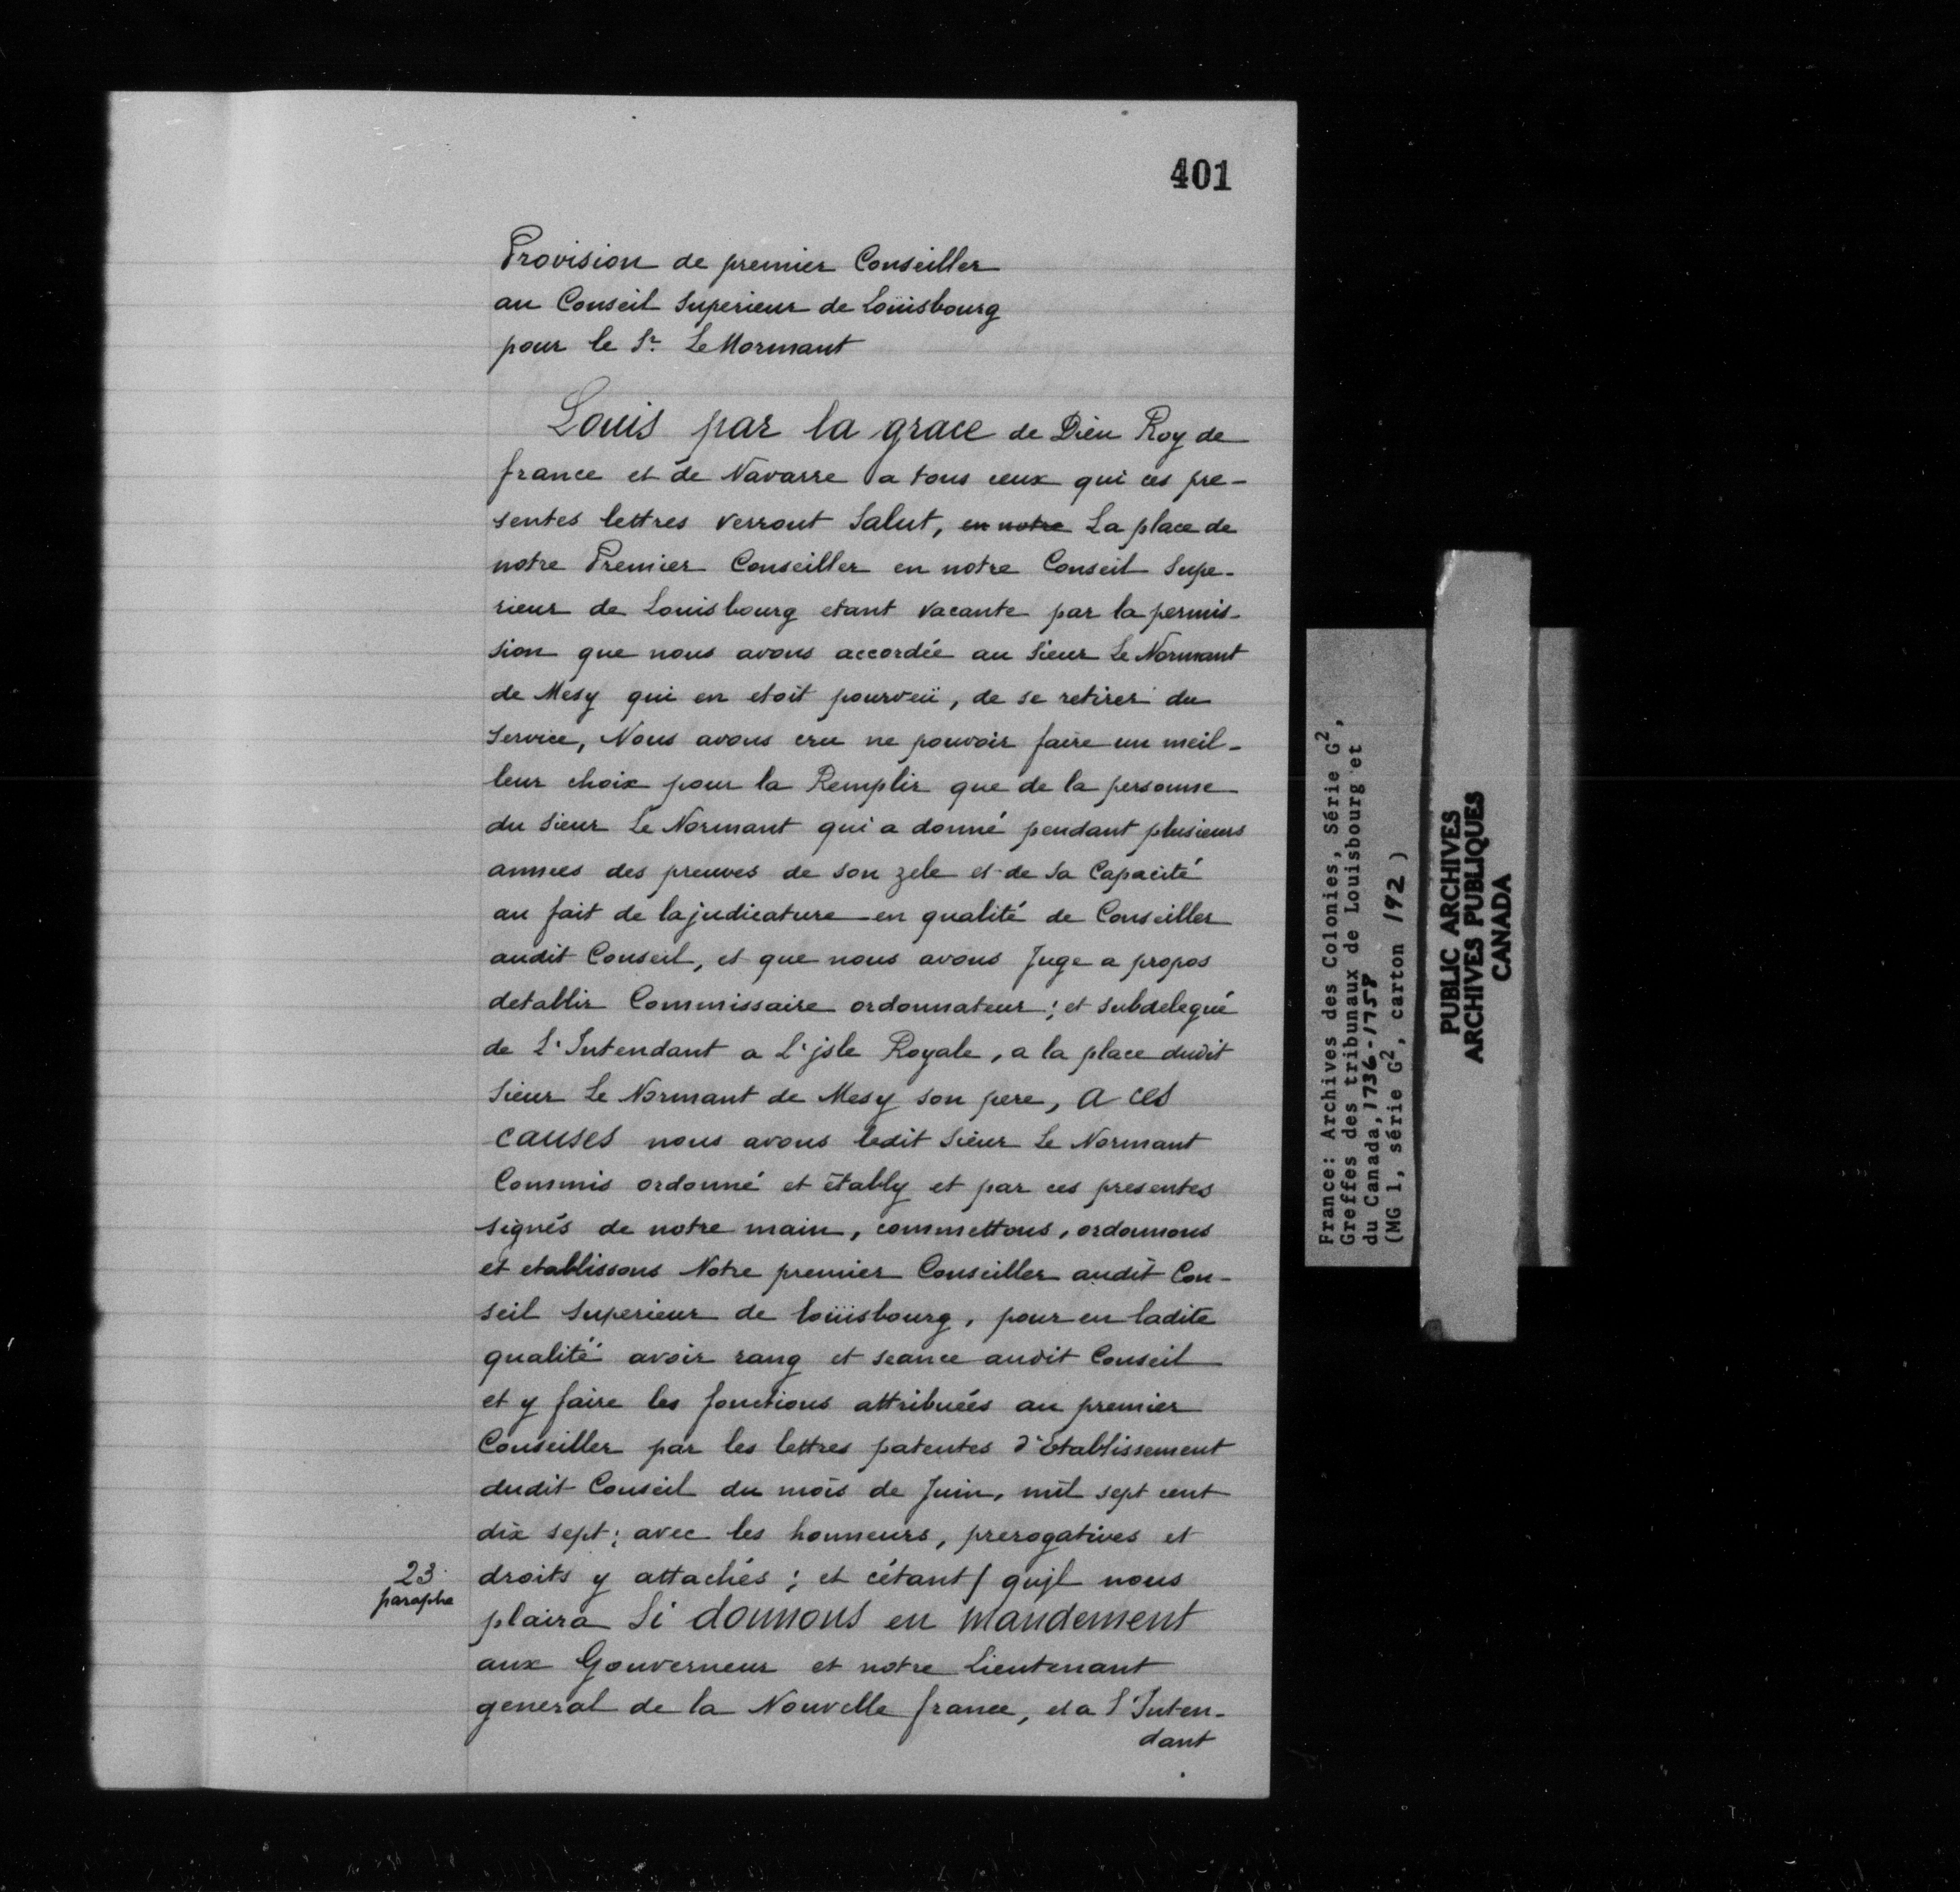 401
Provision de premier Conseiller
au Conseil Superieur de Loüisbourg
pour le Sr. Le Normant
Louis par la grace de Dieu Roy de
france et de Navarre a tous ceux qui ces pre-
sentes lettres verront Salut, en notre La place de
notre Premier Conseiller en notre Conseil Supe-
rieur de Louisbourg etant vacante par la permis-
sion que nous avons accordée au Sieur Le Normant
de Mesy qui en etoit pourveü, de se retirer du
Service, Nous avons cru ne pouvoir faire un meil-
leur choix pour la Remplir que de la personne
du Sieur Le Normant qui a donné pendant plusieurs
annees des preuves de son zele et de sa Capacité
au fait de la judicature en qualité de Conseiller
audit Conseil, et que nous avons Juge a propos
detablir Commissaire ordonnateur; et subdelegué
de L'Intendant a L'jsle Royale, a la place dudit
Sieur Le Normant de Mesy son pere, a ces
causes nous avons ledit Sieur Le Normant
Commis ordonné et établly et par ces presentes
signés de notre main, commettons, ordonnons
et etablissons Notre premier Conseiller audit Con-
seil Superieur de Loüisbourg, pour en ladite
qualité avoir rang et seance audit Conseil
et y faire les fonctions attribuées au premier
Conseiller par les lettres patentes d'Etablissement
dudit Conseil du mois de Juin, mil sept cent
dix sept; avec les honneurs, prerogatives et
23
paraphe
droits y attachés; et cétant / qujl nous
plaira Si donnons en Mandement
aux Gouverneur et notre Lieutenant
general de la Nouvelle france, et a l'Inten-
dant
France: Archives des Colonies, Série G2,
Greffes des tribunaux de Louisbourg et
du Canada, 1736-1758
(MG 1, série G2, carton 192)
PUBLIC ARCHIVES
ARCHIVES PUBLIQUES
CANADA